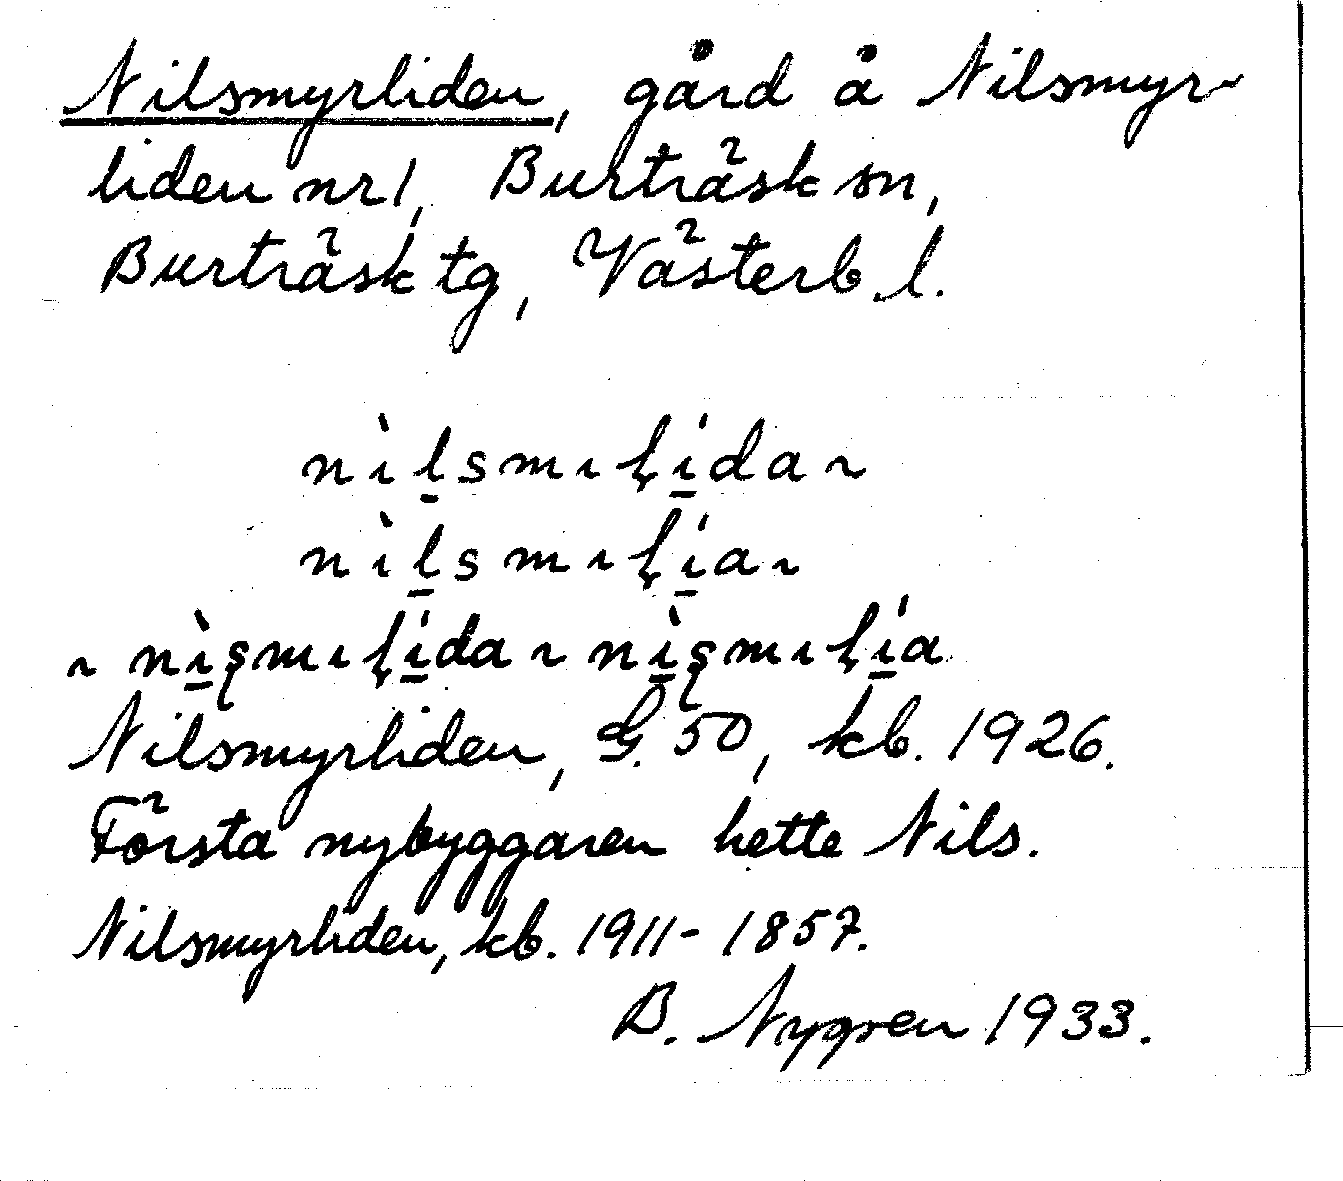 Nilsmyrliden, gård å Nilsmyr-
liden nr 1, Burträsk sn,
Burträsk tg, Västerb. l.
nìl̲smıļí̲da ~
nìl̲smıļí̲a ~
~ nì̲ʂmıļí̲da ~ nì̲ʂmıļí̲a
Nilsmyrliden, G. 50, kb. 1926.
Första nybyggaren hette Nils.
Nilsmyrliden, kb. 1911-1857.
B. Nygren 1933.